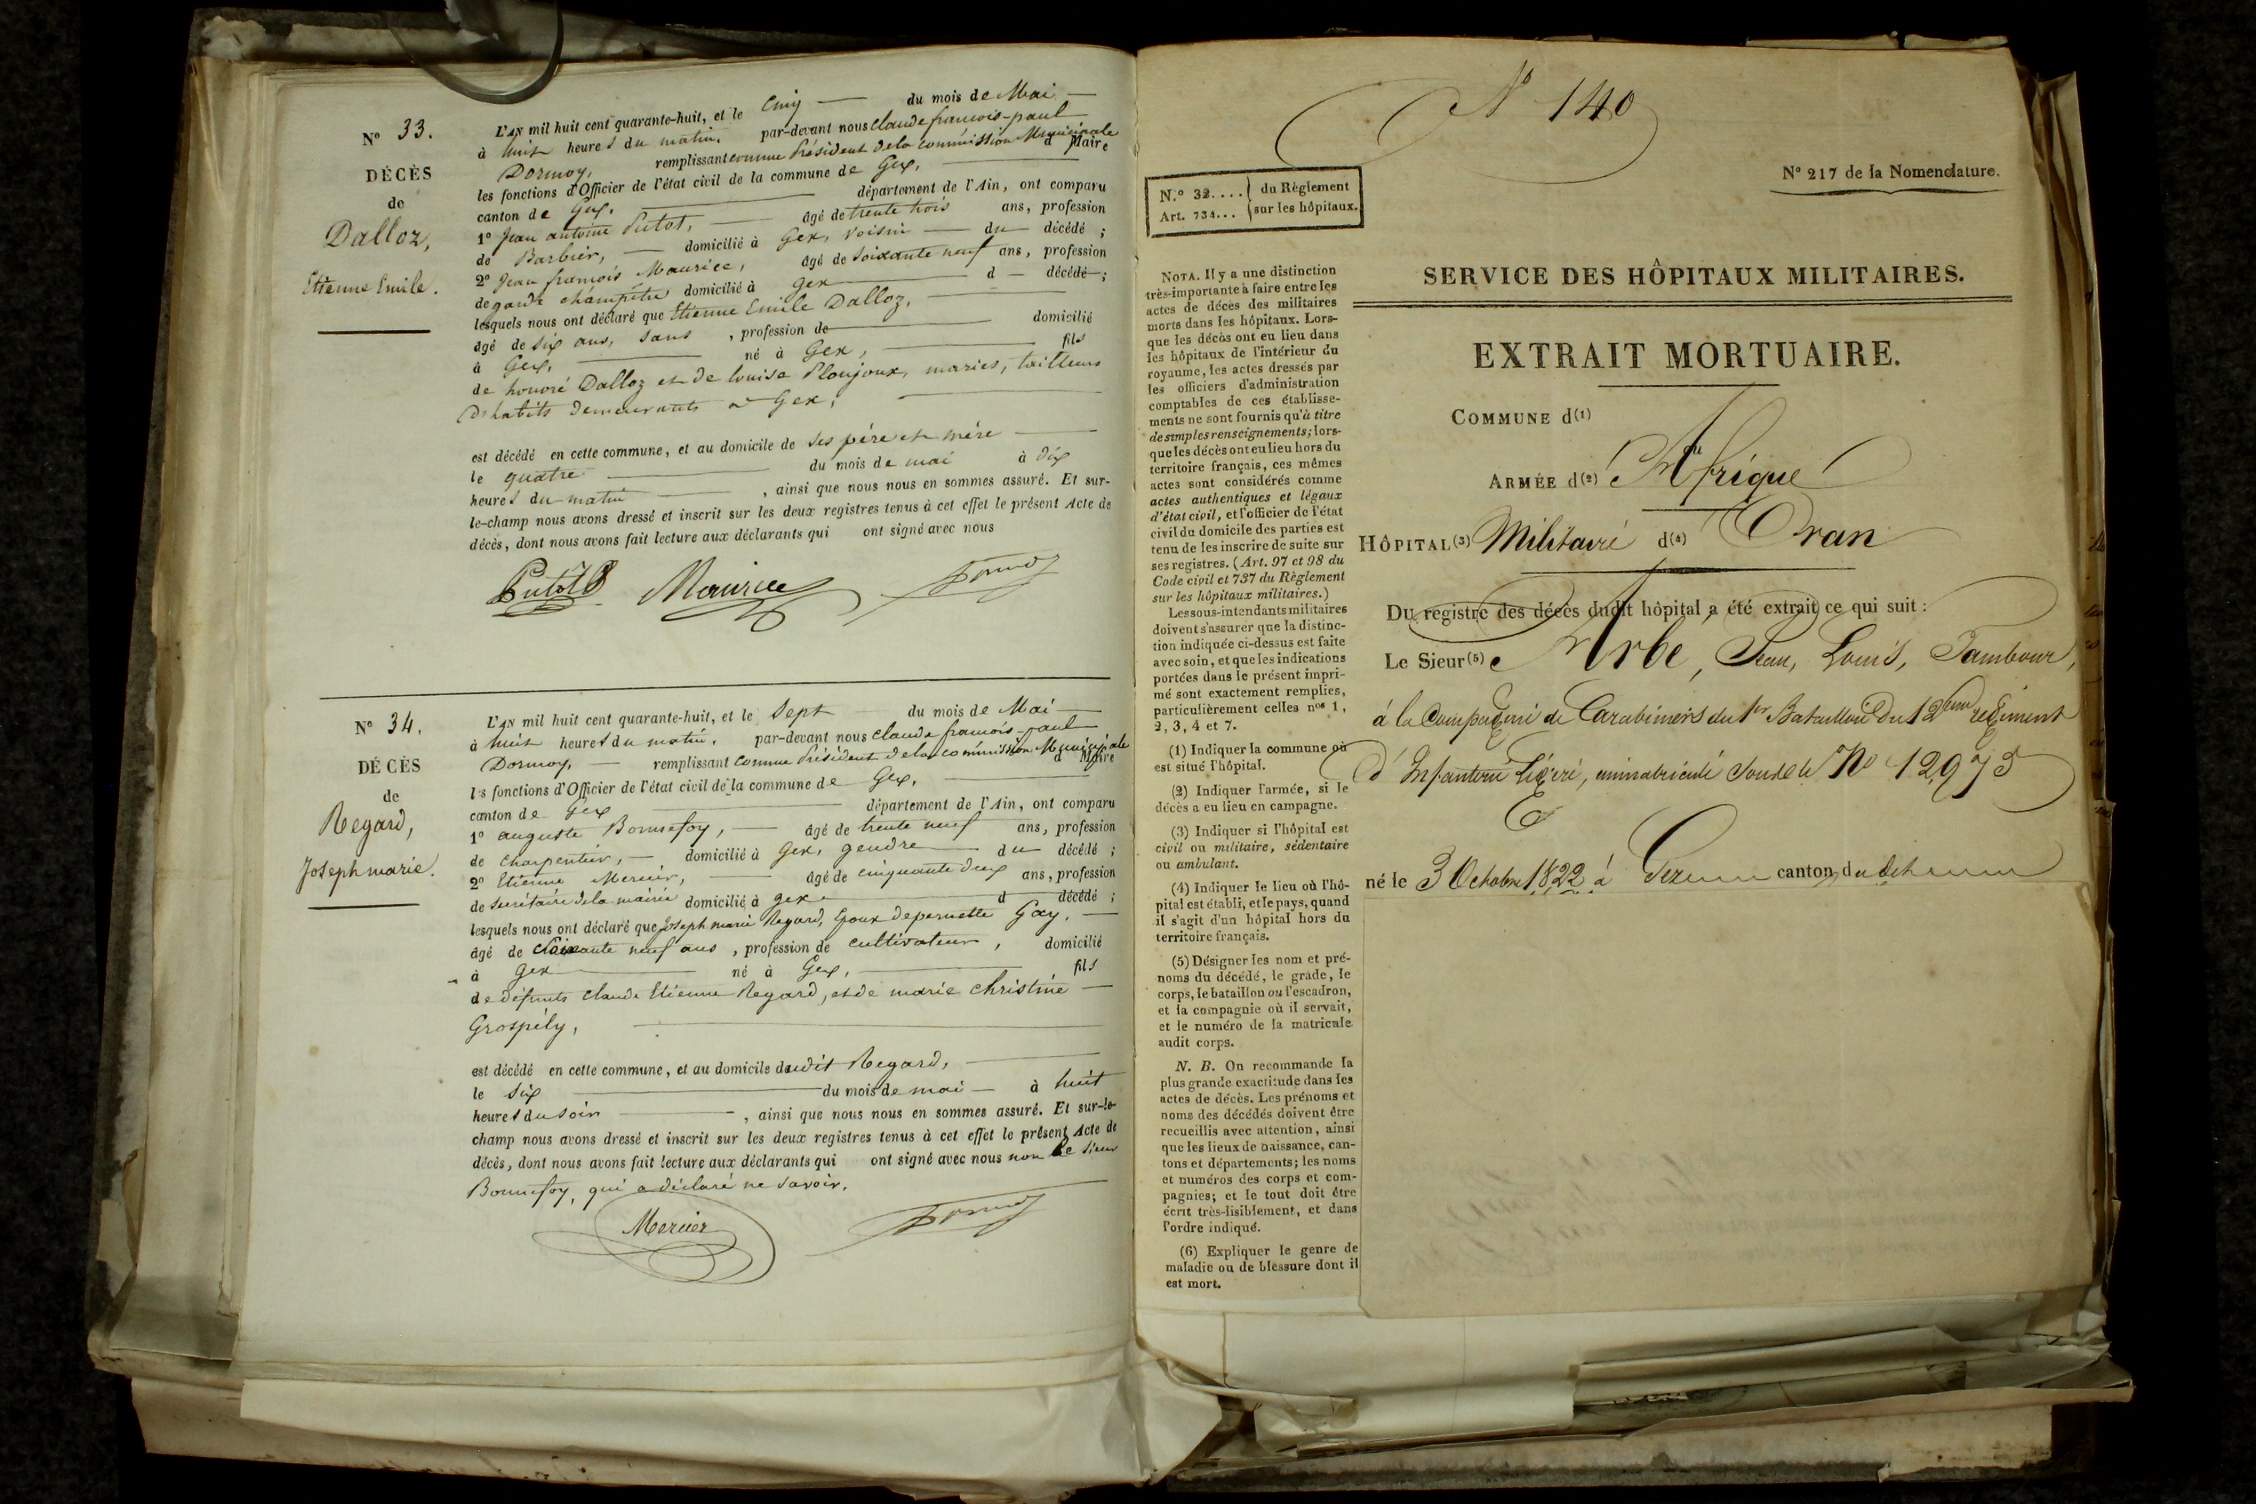 N° 33.
DÉCÈS
de
Dalloz,
Etienne Emile.
L'AN mil huit cent quarante-huit, et le Cinq du mois de Mai
à huit heures du matin, par-devant nous Claude françois-paul
Dormoy, remplissant comme Président de la commission Municipale d Maire
les fonctions d'Officier de l'état civil de la commune de Gex,
canton de Gex, département de l'Ain, ont comparu
1° Jean antoine Putot, âgé de trente trois ans, profession
de Barbier, domicilié à Gex, voisin du décédé ;
2° Jean françois Maurice, âgé de soixante neuf ans, profession
de garde champêtre domicilié à Gex d décédé ;
lesquels nous ont déclaré que Etienne Emile Dalloz,
âgé de six ans, sans , profession de domicilié
à Gex, né à Gex, fils
de honoré Dalloz et de louise Ploujoux, mariés, tailleurs
d'habits demeurants à Gex,
est décédé en cette commune, et au domicile de ses père et mère
le quatre du mois de mai à dix
heures du matin , ainsi que nous nous en sommes assuré. Et sur-
le-champ nous avons dressé et inscrit sur les deux registres tenus à cet effet le présent Acte de
décès, dont nous avons fait lecture aux déclarants qui ont signé avec nous
Putot Maurice Dormoy
N° 34.
DÉCÈS
de
Regard,
Joseph marie.
L'AN mil huit cent quarante-huit, et le Sept du mois de Mai
à huit heures du matin, par-devant nous Claude françois-paul
Dormoy, remplissant comme Président de la commission Municipale d Maire
les fonctions d'Officier de l'état civil de la commune de Gex,
canton de Gex département de l'Ain, ont comparu
1° auguste Bonnefoy, âgé de trente neuf ans, profession
de charpentier, domicilié à Gex, gendre du décédé ;
2° Etienne Mercier, âgé de cinquante deux ans, profession
de secrétaire de la mairie domicilié à gex d décédé ;
lesquels nous ont déclaré que Joseph marie Regard, Epoux de pernette Gay,
âgé de soixante neuf ans , profession de cultivateur , domicilié
à gex né à Gex, fils
de défunts Claude Etienne Regard, et de marie christine
Grospély,
est décédé en cette commune, et au domicile dudit Regard,
le six du mois de mai à huit
heures du soir , ainsi que nous nous en sommes assuré. Et sur-le-
champ nous avons dressé et inscrit sur les deux registres tenus à cet effet le présent Acte de
décès, dont nous avons fait lecture aux déclarants qui ont signé avec nous non le sieur
Bonnefoy, qui a déclaré ne savoir.
Mercier Dormoy
N° 140
N.° 32.... du Règlement
Art. 734... sur les hôpitaux.
N° 217 de la Nomenclature.
NOTA. Il y a une distinction
très-importante à faire entre les
actes de décès des militaires
morts dans les hôpitaux. Lors-
que les décès ont eu lieu dans
les hôpitaux de l'intérieur du
royaume, les actes dressés par
les officiers d'administration
comptables de ces établisse-
ments ne sont fournis qu'à titre
de simples renseignements; lors-
que les décès ont eu lieu hors du
territoire français, ces mêmes
actes sont considérés comme
actes authentiques et légaux
d'état civil, et l'officier de l'état
civil du domicile des parties est
tenu de les inscrire de suite sur
ses registres. (Art. 97 et 98 du
Code civil et 737 du Règlement
sur les hôpitaux militaires.)
Les sous-intendants militaires
doivent s'assurer que la distinc-
tion indiquée ci-dessus est faite
avec soin, et que les indications
portées dans le présent impri-
mé sont exactement remplies,
particulièrement celles nos 1,
2, 3, 4 et 7.
(1) Indiquer la commune où
est situé l'hôpital.
(2) Indiquer l'armée, si le
décès a eu lieu en campagne.
(3) Indiquer si l'hôpital est
civil ou militaire, sédentaire
ou ambulant.
(4) Indiquer le lieu où l'hô-
pital est établi, et le pays, quand
il s'agit d'un hôpital hors du
territoire français.
(5) Désigner les nom et pré-
noms du décédé, le grade, le
corps, le bataillon ou l'escadron,
et la compagnie où il servait,
et le numéro de la matricule
audit corps.
N. B. On recommande la
plus grande exactitude dans les
actes de décès. Les prénoms et
noms des décédés doivent être
recueillis avec attention, ainsi
que les lieux de naissance, can-
tons et départements; les noms
et numéros des corps et com-
pagnies; et le tout doit être
écrit très-lisiblement, et dans
l'ordre indiqué.
(6) Expliquer le genre de
maladie ou de blessure dont il
est mort.
SERVICE DES HÔPITAUX MILITAIRES.
EXTRAIT MORTUAIRE.
COMMUNE d(1)
ARMÉE d(2) Afrique
HÔPITAL(3) Militaire d(4) Oran
Du registre des décès dudit hôpital a été extrait ce qui suit :
Le Sieur(5) Arbe, Jean, Louis, Tambour,
à la Compagnie de Carabiniers du 1er Bataillon du 12eme régiment
d'Infanterie Légère, immatriculé sous le No 12,973
né le 3 Octobre 1822 à Gex canton dudit